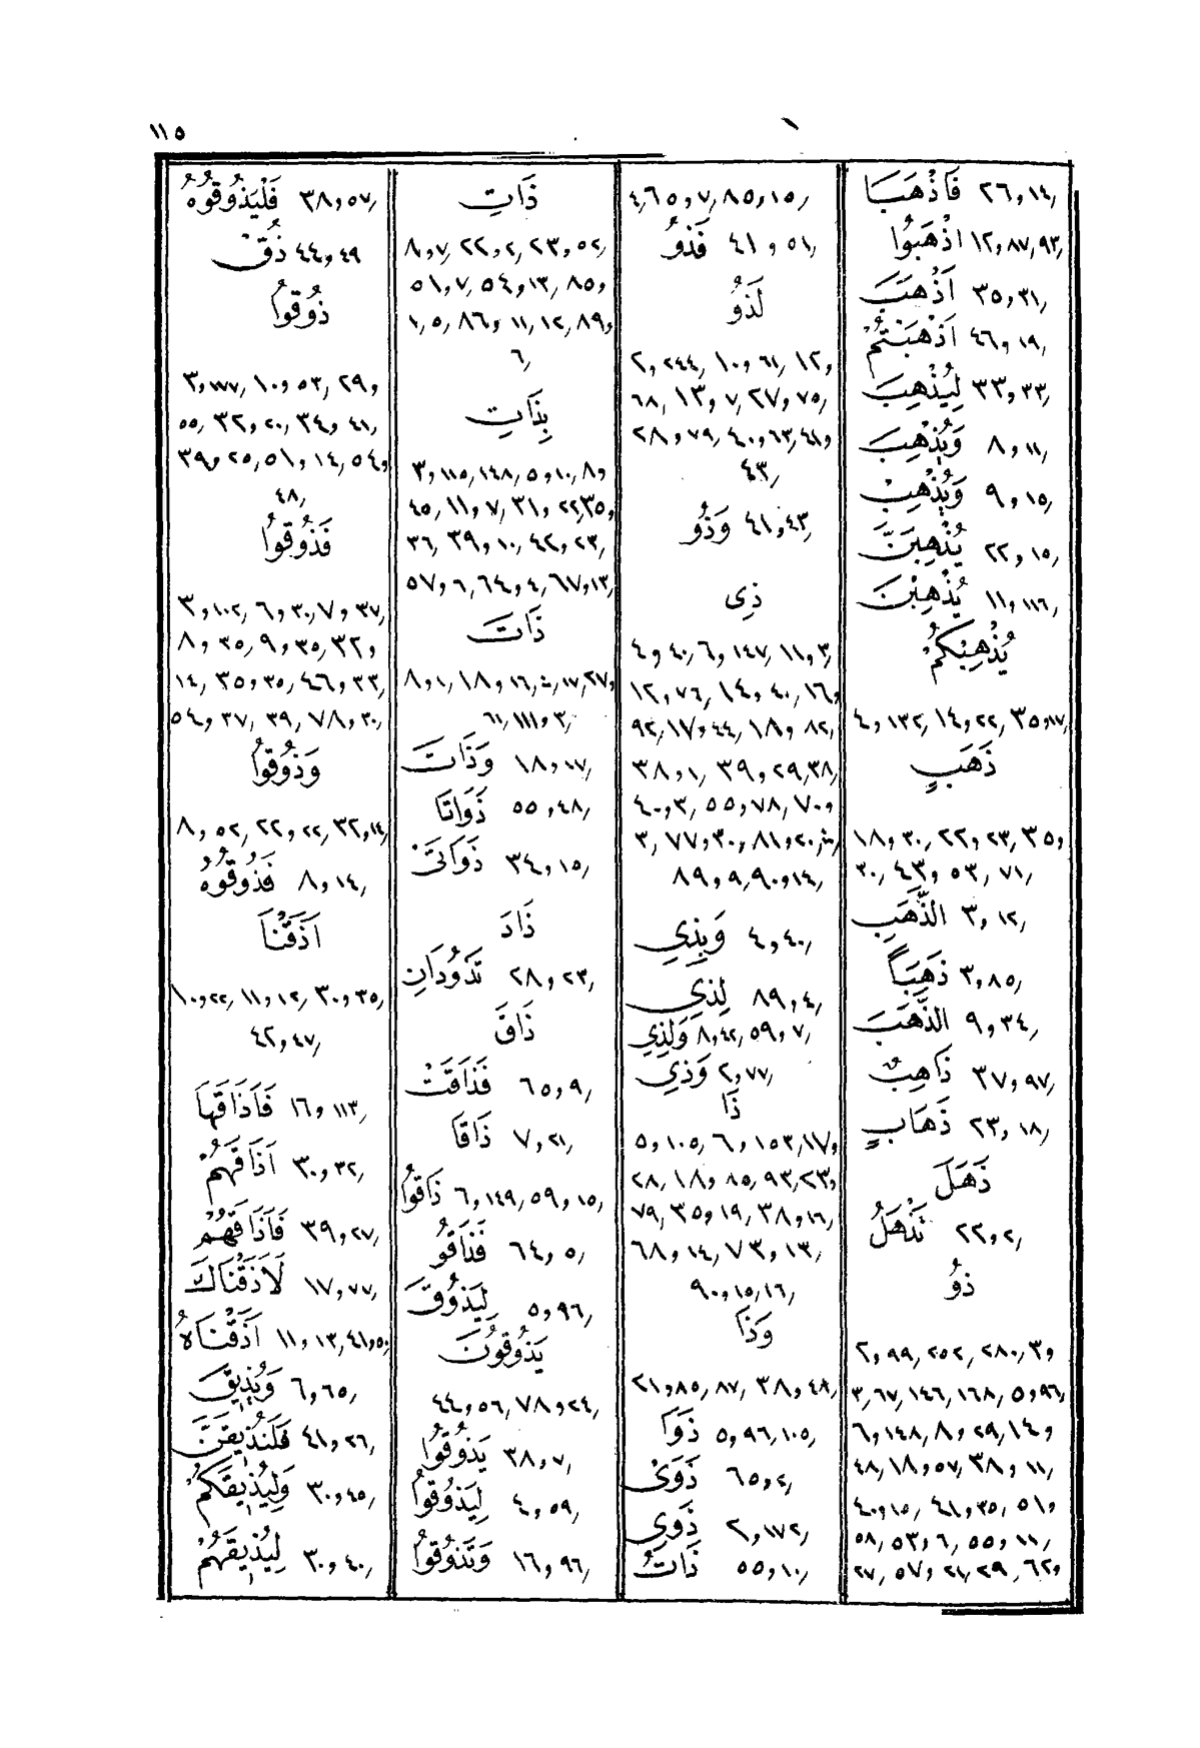 ١١٥
فَاذْهَبَا ٢٦و١٤,
اذْهَبُوا ١٢و٨٧,٩٣,
اَذْهَبَ ٣٥و٣١,
اَذْهَبْتُمْ ٤٦و١٩,
لِيُذْهِبَ ٣٣و٣٣,
وَيُذْهِبَ ٨و١١,
وَيُذْهِبْ ٩و١٥,
يُذْهِبَنَّ ٢٢و١٥,
يُذْهِبْنَ ١١و١١٦,
يُذْهِبْكُمْ
٤و١٣٢, ١٤و٢٢, ٣٥و١٧,
ذَهَبٍ
١٨و٣٠, ٢٢و٢٣, ٣٥و
٣٠, ٤٣و٥٣, ٧١,
الذَّهَبِ ٣و١٢,
ذَهَبًا ٣و٨٥,
الذَّهَبَ ٩و٣٤,
ذَاهِبٌ ٣٧و٩٧,
ذَهَابٍ ٢٣و١٨,
ذَهَلَ
تَذْهَلُ ٢٢و٢,
ذُو
٢و٩٩, ٢٥٢, ٢٨٠, ٣و
٣,٦٧, ١٤٦, ١٦٨, ٥و٩٦,
٦و١٤٨, ٨و٢٩, ١٤و
٤٨, ١٨و٥٧, ٣٨و١١,
٤٠و١٥, ٤١و٣٥, ٥١و
٥٨, ٥٣و٦, ٥٥و١١,
٢٧, ٥٧و٢١, ٢٩, ٦٢و
٤,٦٥و٧, ٨٥و١٥,
فَذُو ٤١و٥١,
لَذُو
٢و٢٤٤, ١٠و٦١, ١٢و
٦٨, ١٣و٧, ٢٧و٧٥,
٢٨و٧٩, ٤٠و٦٣, ٤١و
٤٣,
وَذُو ٤١و٤٣,
ذِى
٤و٤٠, ٦و١٤٧, ١١و٣,
١٢و٧٦, ١٤و٤٠, ١٦و
٩٢, ١٧و٤٤, ١٨و٨٢,
٣٨و١, ٣٩و٢٩,٣٨,
٤٠و٣, ٥٥و٧٨, ٧٠و
٣, ٧٧و٣٠, ٨١و٢٠,
٨٩و٩, ٩٠و١٤,
وَبِذِي ٤و٤٠,
لِذِي ٨٩و٤,
وَلِذِي ٨و٤٢, ٥٩و٧,
وَذِي ٢و٧٧,
ذَا
٥و١٠٥, ٦و١٥٣, ١٧و
٢٨, ١٨و٨٥, ٩٣,٢٣و
٧٩, ٣٥و١٩, ٣٨و١٦,
٦٨و١٤, ٧٣و١٣,
٩٠و١٥, ١٦,
وَذَا
٢١و٨٥, ٨٧, ٣٨و٤٨,
ذَوَا ٥و٩٦, ١٠٥,
ذَوَىْ ٦٥و٢,
ذَوِي ٢و١٧٢,
ذَاتُ ٥٥و١٠,
ذَاتِ
٨و٧, ٢٢و٢, ٢٣و٥٢,
٥١و٧, ٥٤و١٣, ٨٥و
١,٥, ٨٦و١١, ١٢, ٨٩و
٦,
بِذَاتِ
٣و١١٥, ١٤٨, ٥و١٠, ٨و
٤٥, ١١و٧, ٣١و٢٢,٣٥و
٣٦, ٣٩و١٠, ٤٢و٢٣,
٥٧و٦, ٦٤و٤, ٦٧و١٣,
ذَاتَ
٨و١, ١٨و١٦, ١٧, ٢٧و
٦١, ١١١و٣,
وَذَاتَ ١٨و١٧,
ذَوَاتَا ٥٥و٤٨,
ذَوَاتَىْ ٣٤و١٥,
ذَادَ
تَذُودَانِ ٢٨و٢٣,
ذَاقَ
فَذَاقَتْ ٦٥و٩,
ذَاقَا ٧و٢١,
ذَاقُوا ٦و١٤٩, ٥٩و١٥,
فَذَاقُو ٦٤و٥,
لِيَذُوقَ ٥و٩٦,
يَذُوقُونَ
٤٤و٥٦, ٧٨و٢٤,
يَذُوقُوا ٣٨و٧,
لِيَذُوقُوا ٤و٥٩,
وَتَذُوقُوا ١٦و٩٦,
فَلْيَذُوقُوهُ ٣٨و٥٧,
ذُقْ ٤٤و٤٩
ذُوقُوا
٣و١٧٧, ١٠و٥٣, ٢٩و
٥٥, ٣٢و٢٠, ٣٤و٤١,
٣٩و٢٥, ٥١و١٤, ٥٤و
٤٨,
فَذُوقُوا
٣و١٠٢, ٦و٣٠, ٧و٣٧,
٨و٣٥, ٩و٣٥, ٣٢و
١٤, ٣٥و٣٥, ٤٦و٣٣,
٥٤و٣٧, ٣٩, ٧٨و٣٠,
وَذُوقُوا
٨و٥٢, ٢٢و٢٢, ٣٢و١٤,
فَذُوقُوهُ ٨و١٤,
اَذَقْنَا
١٠و٢٢, ١١و١٢, ٣٠و٣٥,
٤٢و٤٧,
فَاَذَاقَهَا ١٦و١١٣,
اَذَاقَهُمْ ٣٠و٣٢,
فَاَذَاقَهُمْ ٣٩و٢٧,
لَاَذَقْنَاكَ ١٧و٧٧,
اَذَقْنَاهُ ١١و١٣, ٤١و٥٠,
وَيُذِيقَ ٦و٦٥,
فَلَنُذِيقَنَّ ٤١و٢٦,
وَلِيُذِيقَكُمْ ٣٠و٤٥,
لِيُذِيقَهُمْ ٣٠و٤٠,